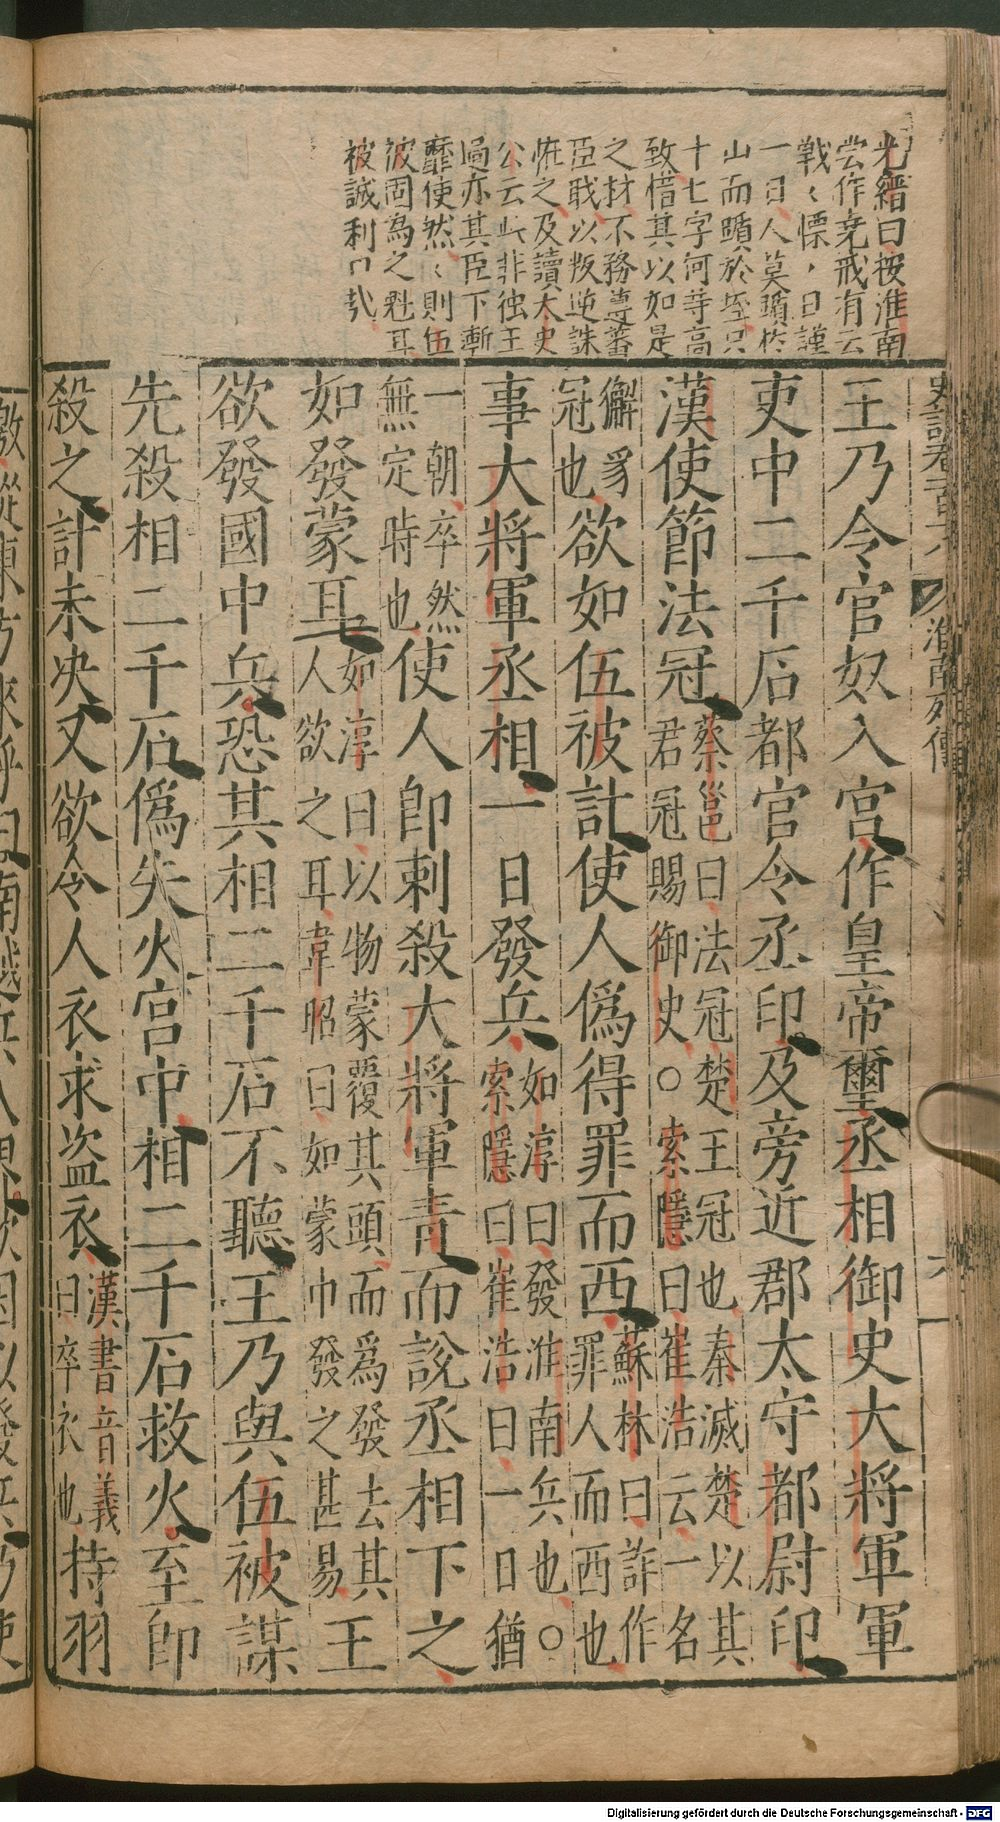 光縉曰按淮南
嘗作堯戒有云
戰〻慄〻日謹
一日人莫躓於
山而躓於垤只
十七字何等高
致惜其以如是
之材不務遵蕃
臣職以叛逆誅
恠之及讀太史
公云此非獨王
過亦其臣下漸
靡使然〻則伍
被固為之魁耳
被誠利口哉
史記卷一百十八 淮南列傳 六
王乃令官奴入宫作皇帝璽丞相御史大將軍軍
吏中二千石都官令丞印及旁近郡太守都尉印
漢使節法冠蔡邕曰法冠楚王冠也秦滅楚以其
君冠賜御史○索隱曰崔浩云一名
獬豸
冠也欲如伍被計使人僞得罪而西蘇林曰詐作
罪人而西也
事大將軍丞相一日發兵如淳曰發淮南兵也○
索隱曰崔浩曰一日猶
一朝卒然
無定時也使人即刺殺大將軍青而說丞相下之
如發蒙耳如淳曰以物蒙覆其頭而爲發去其
人欲之耳韋昭曰如蒙巾發之甚易王
欲發國中兵恐其相二千石不聽王乃與伍被謀
先殺相二千石僞失火宫中相二千石救火至即
殺之計未决又欲令人衣求盗衣漢書音義
曰卒衣也持羽
檄從東方來呼曰南越兵入界欲因以發兵乃使
Digitalisierung gefördert durch die Deutsche Forschungsgemeinschaft - DFG